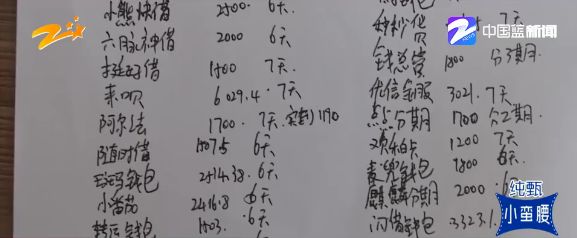 小熊快借 2500 6天
六脉神借 2000 6天
1500 7天
来呗 6029.4 7天
阿尔法 1700 7天 实到1190
随时借 1507.5 6天
斑马钱包 2514.38 6天
小番茄 2416.8 6天
钱包 1503 6天
秒 7天
钱总管 1800 分期
优信金服 3021 7天
点点分期 1700 分2期
1200 7天
钱包 1800 6天
麒麟分期 2000 6
闪借钱包 3323.1
中国蓝新闻
纯甄
小蛮腰